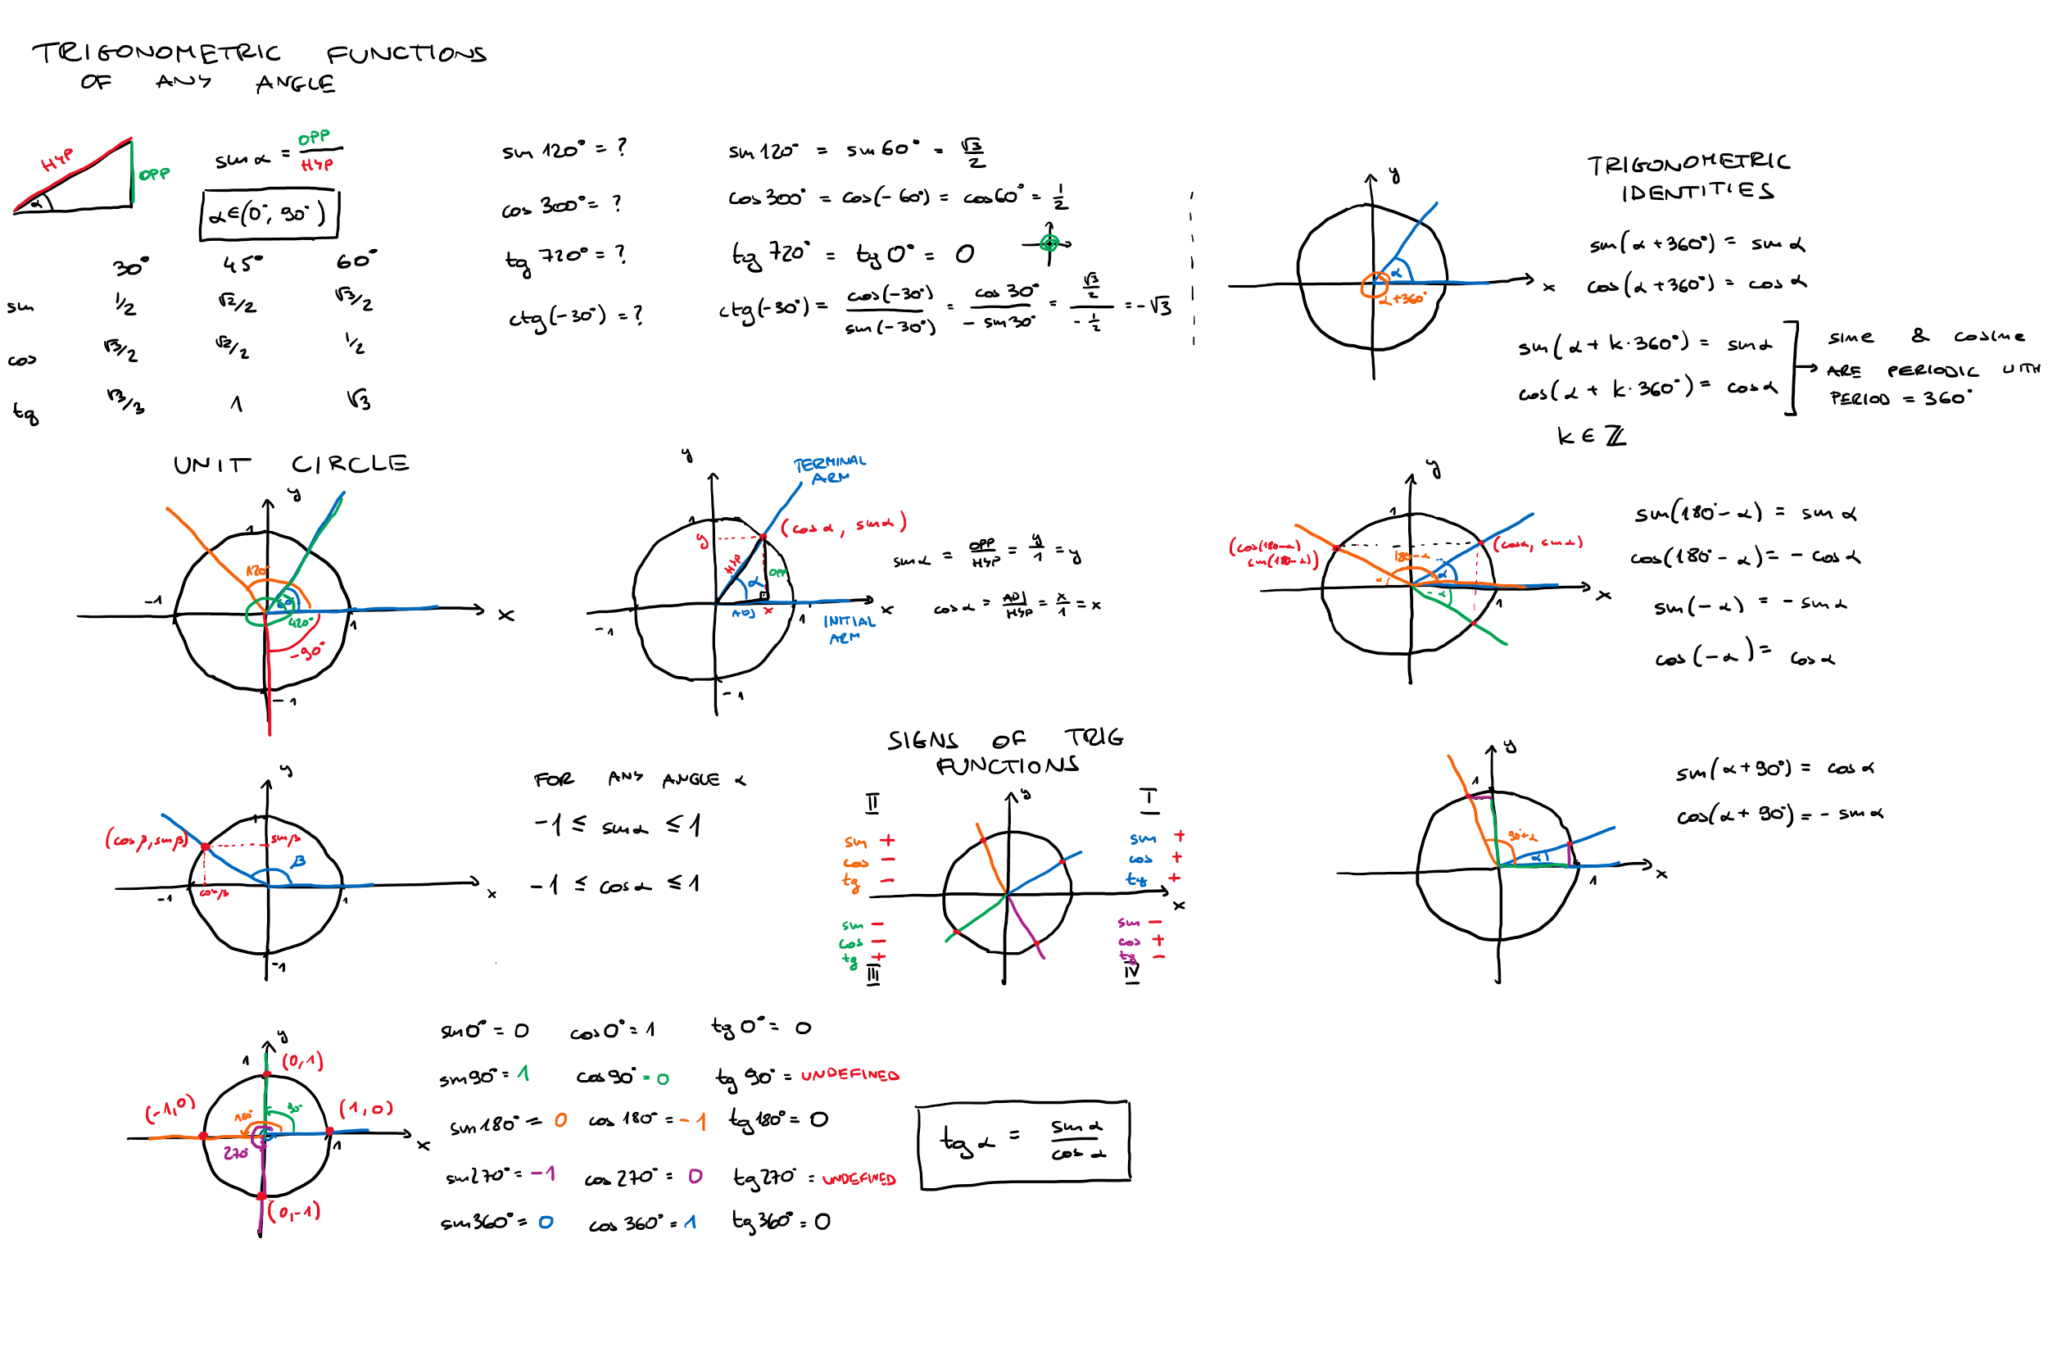 TRIGONOMETRIC FUNCTIONS
OF ANY ANGLE
HYP
OPP
α
sin α = OPP/HYP
α∈(0°, 90°)
30° 45° 60°
sin 1/2 √2/2 √3/2
cos √3/2 √2/2 1/2
tg √3/3 1 √3
sin 120° = ?
cos 300° = ?
tg 720° = ?
ctg(-30°) = ?
sin 120° = sin 60° = √3/2
cos 300° = cos(-60°) = cos 60° = 1/2
tg 720° = tg 0° = 0
ctg(-30°) = cos(-30°)/sin(-30°) = cos 30°/-sin 30° = (√3/2)/(-1/2) = -√3
TRIGONOMETRIC
IDENTITIES
y
x
α
α+360°
sin(α+360°) = sin α
cos(α+360°) = cos α
sin(α + k·360°) = sin α
cos(α + k·360°) = cos α
k ∈ ℤ
SINE & COSINE
ARE PERIODIC WITH
PERIOD = 360°
UNIT CIRCLE
y
1
120°
60°
-1
420°
1
x
-90°
-1
y
TERMINAL
ARM
1
(cos α, sin α)
y
HYP
α
OPP
ADJ
x
1
x
-1
INITIAL
ARM
-1
sin α = OPP/HYP = y/1 = y
cos α = ADJ/HYP = x/1 = x
y
1
(cos(180-α)
sin(180-α))
180-α
(cos α, sin α)
α
α
-α
1
x
sin(180°-α) = sin α
cos(180°-α) = -cos α
sin(-α) = -sin α
cos(-α) = cos α
y
1
(cos β, sin β)
sin β
β
cos β
-1
1
x
-1
FOR ANY ANGLE α
-1 ≤ sin α ≤ 1
-1 ≤ cos α ≤ 1
SIGNS OF TRIG
FUNCTIONS
y
x
II
sin +
cos -
tg -
I
sin +
cos +
tg +
sin -
cos -
tg +
III
sin -
cos +
tg -
IV
y
1
90+α
α
1
x
sin(α+90°) = cos α
cos(α+90°) = -sin α
y
1
(0,1)
(-1,0)
180°
90°
(1,0)
270°
1
x
(0,-1)
sin 0° = 0 cos 0° = 1 tg 0° = 0
sin 90° = 1 cos 90° = 0 tg 90° = UNDEFINED
sin 180° = 0 cos 180° = -1 tg 180° = 0
sin 270° = -1 cos 270° = 0 tg 270° = UNDEFINED
sin 360° = 0 cos 360° = 1 tg 360° = 0
tg α = sin α/cos α